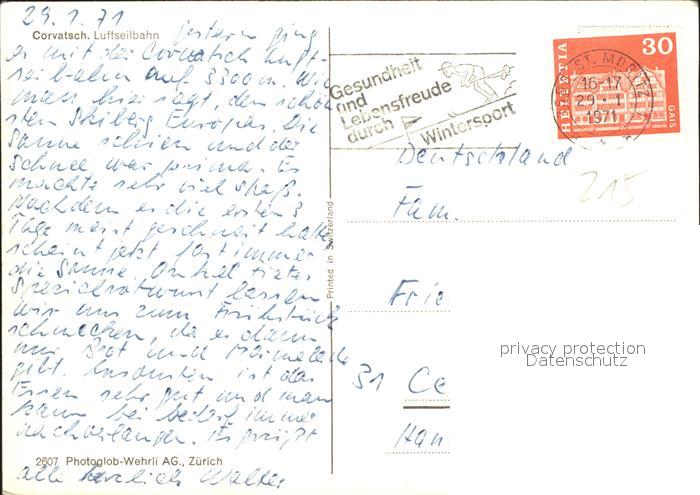 29.1.71
Corvatsch. Luftseilbahn
gestern ging
es mit der Corvatsch Luft-
seilbahn auf 3300 m. Wie
man hier sagt, den schön
sten Skiberg Europas. Die
Sonne schien und der
Schnee war prima. Es
machte sehr viel Spaß.
Nachdem es die ersten 3
Tage meist geschneit hatte
scheint jetzt fast immer
die Sonne. Onkel
Spezialratwurst lassen
wir uns zum Frühstück
schmecken, da es dann
nur Brot und Marmelade
gibt. Ansonsten ist das
Essen sehr gut und man
kann bei Bedarf immer
nachverlangen. Es grüßt
alle herzlich Walter
2607 Photoglob-Wehrli AG., Zürich
Printed in Switzerland
Gesundheit
und
Lebensfreude
durch
Wintersport
ST. MORITZ
16-17
29.-1
1971
HELVETIA
30
GAIS
Deutschland
215
Fam.
Frie
31 Ce
Han
privacy protection
Datenschutz